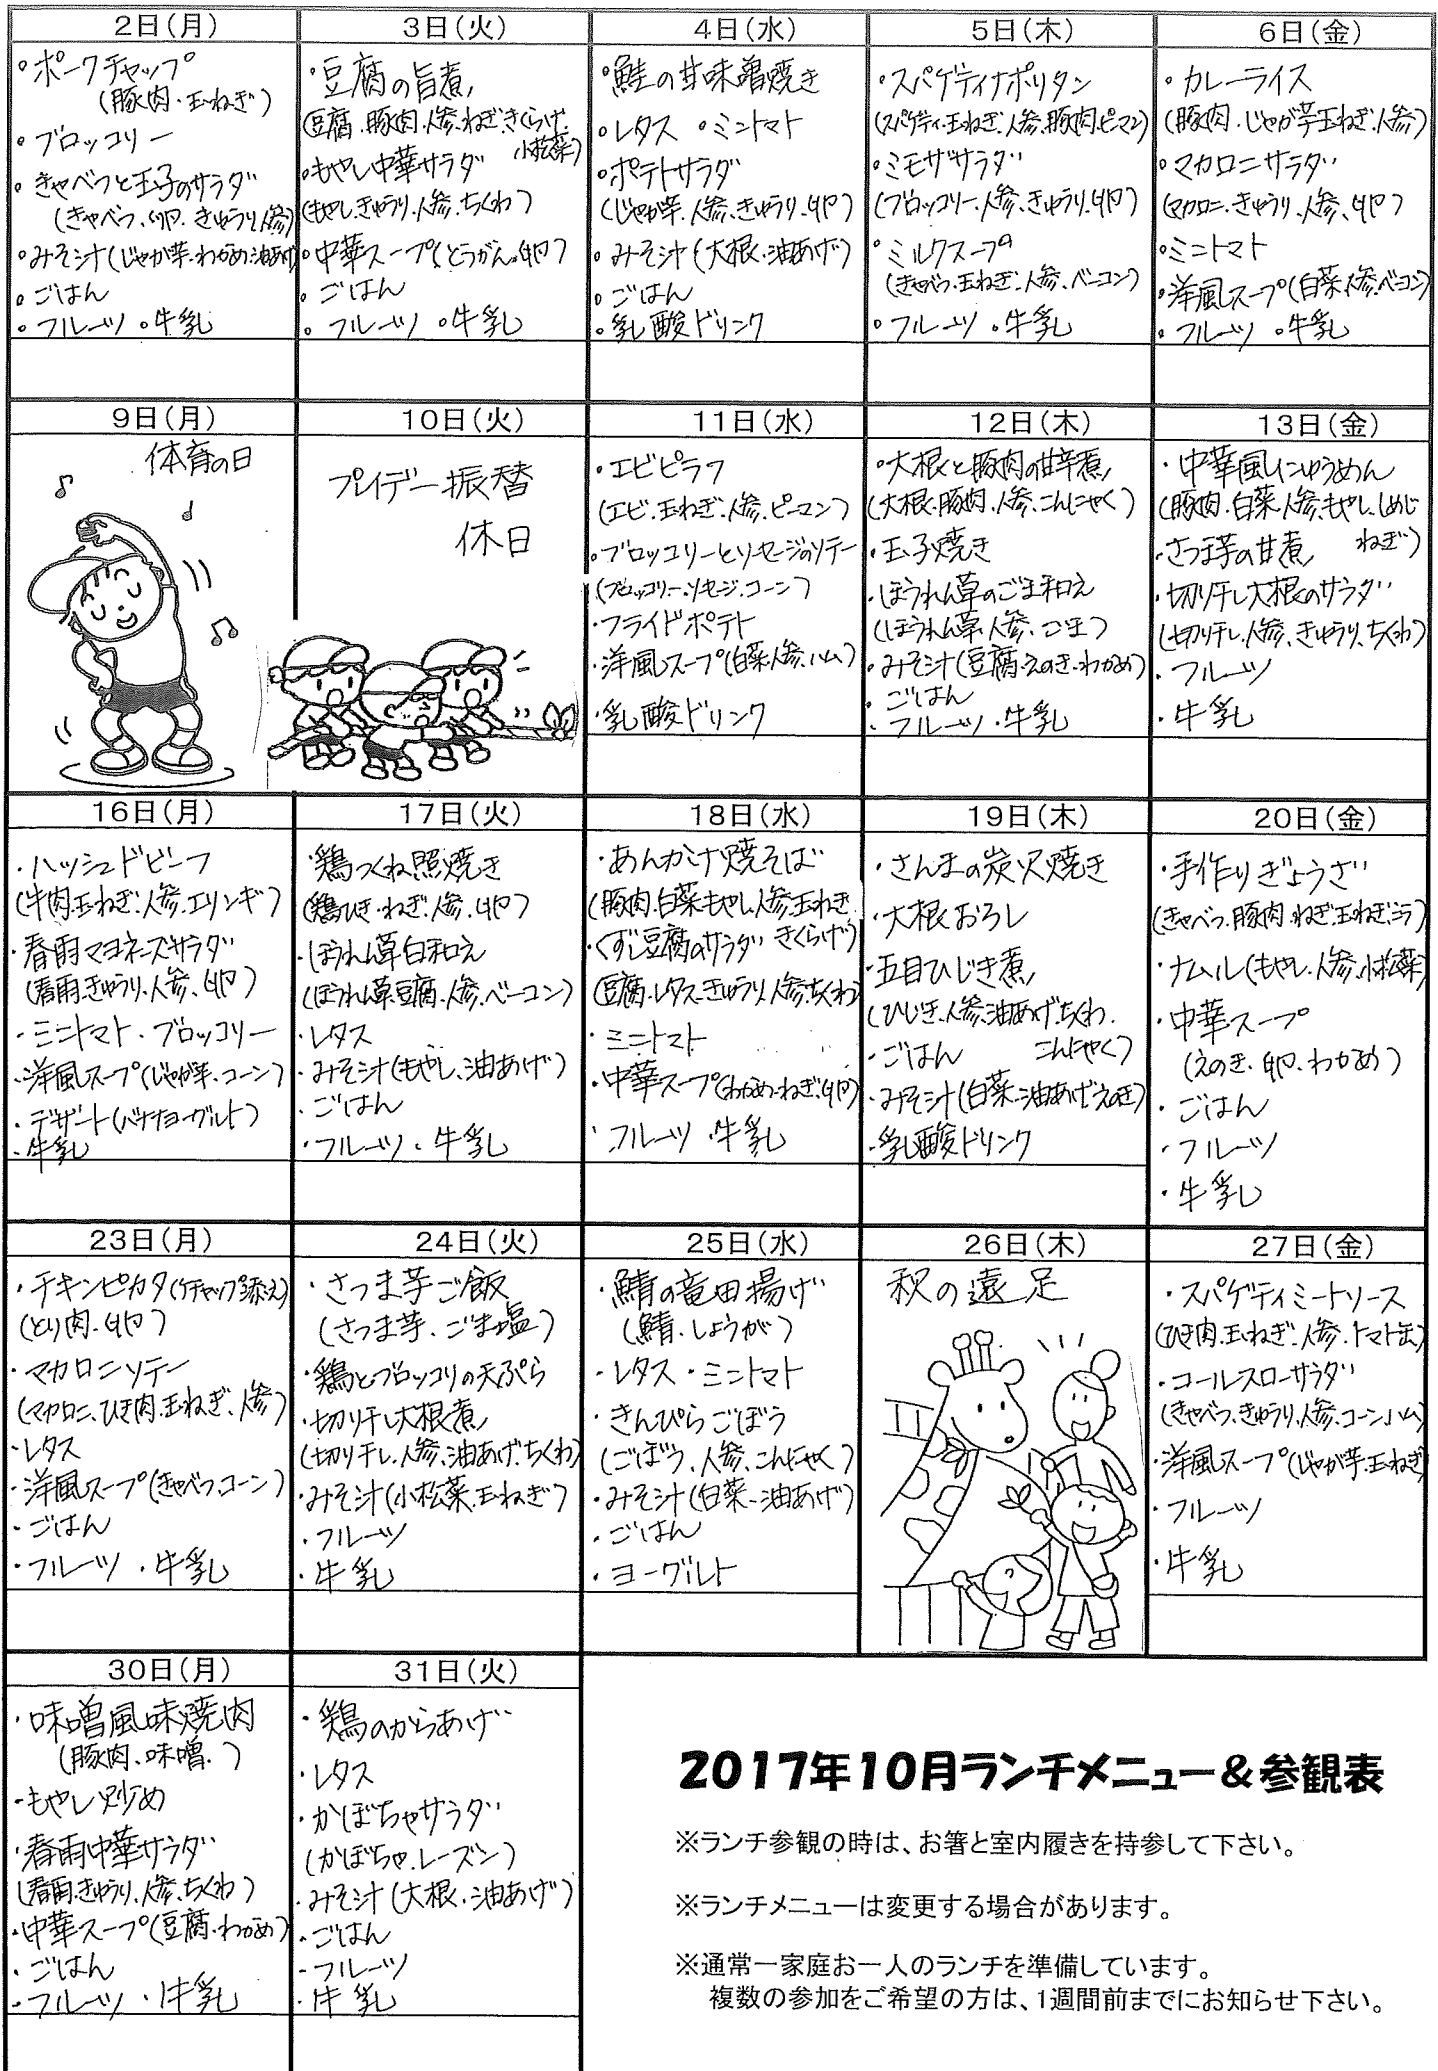 2日(月)
・ポークチャップ
(豚肉・玉ねぎ)
・ブロッコリー
・きゃべつと玉子のサラダ
(きゃべつ、卵、きゅうり、人参)
・みそ汁(じゃが芋・わかめ・油あげ)
・ごはん
・フルーツ ・牛乳
3日(火)
・豆腐の旨煮
(豆腐、豚肉、人参、ねぎ、きくらげ、
小松菜)
・もやし中華サラダ
(もやし、きゅうり、人参、ちくわ)
・中華スープ(とうがん、卵)
・ごはん
・フルーツ ・牛乳
4日(水)
・鮭の甘味噌焼き
・レタス ・ミニトマト
・ポテトサラダ
(じゃが芋、人参、きゅうり、卵)
・みそ汁(大根・油あげ)
・ごはん
・乳酸ドリンク
5日(木)
・スパゲティナポリタン
(スパゲティ、玉ねぎ、人参、豚肉、ピーマン)
・ミモザサラダ
(ブロッコリー、人参、きゅうり、卵)
・ミルクスープ
(きゃべつ、玉ねぎ、人参、ベーコン)
・フルーツ ・牛乳
6日(金)
・カレーライス
(豚肉、じゃが芋、玉ねぎ、人参)
・マカロニサラダ
(マカロニ、きゅうり、人参、卵)
・ミニトマト
・洋風スープ(白菜、人参、ベーコン)
・フルーツ ・牛乳
9日(月)
体育の日
10日(火)
プレイデー振替
休日
11日(水)
・エビピラフ
(エビ、玉ねぎ、人参、ピーマン)
・ブロッコリーとソーセージのソテー
(ブロッコリー、ソーセージ、コーン)
・フライドポテト
・洋風スープ(白菜、人参、ハム)
・乳酸ドリンク
12日(木)
・大根と豚肉の甘辛煮
(大根・豚肉、人参、こんにゃく)
・玉子焼き
・ほうれん草のごま和え
(ほうれん草、人参、ごま)
・みそ汁(豆腐・えのき・わかめ)
・ごはん
・フルーツ ・牛乳
13日(金)
・中華風にゅうめん
(豚肉、白菜、人参、もやし、しめじ
ねぎ)
・さつま芋の甘煮
・切り干し大根のサラダ
(切り干し、人参、きゅうり、ちくわ)
・フルーツ
・牛乳
16日(月)
・ハッシュドビーフ
(牛肉、玉ねぎ、人参、エリンギ)
・春雨マヨネーズサラダ
(春雨、きゅうり、人参、卵)
・ミニトマト・ブロッコリー
・洋風スープ(じゃが芋、コーン)
・デザート(バナナヨーグルト)
・牛乳
17日(火)
・鶏つくね照焼き
(鶏ひき・ねぎ、人参、卵)
・ほうれん草白和え
(ほうれん草、豆腐、人参、ベーコン)
・レタス
・みそ汁(もやし、油あげ)
・ごはん
・フルーツ ・牛乳
18日(水)
・あんかけ焼そば
(豚肉、白菜、もやし、人参、玉ねぎ、
きくらげ)
・くずし豆腐のサラダ
(豆腐・レタス・きゅうり、人参、ちくわ)
・ミニトマト
・中華スープ(わかめ、ねぎ、卵)
・フルーツ ・牛乳
19日(木)
・さんまの炭火焼き
・大根おろし
・五目ひじき煮
(ひじき、人参、油あげ、ちくわ、
こんにゃく)
・ごはん
・みそ汁(白菜・油あげ・えのき)
・乳酸ドリンク
20日(金)
・手作りぎょうざ
(きゃべつ、豚肉、ねぎ、玉ねぎ、ニラ)
・ナムル(もやし、人参、小松菜)
・中華スープ
(えのき、卵、わかめ)
・ごはん
・フルーツ
・牛乳
23日(月)
・チキンピカタ(ケチャップ添え)
(とり肉、卵)
・マカロニソテー
(マカロニ、ひき肉、玉ねぎ、人参)
・レタス
・洋風スープ(きゃべつ、コーン)
・ごはん
・フルーツ ・牛乳
24日(火)
・さつま芋ご飯
(さつま芋、ごま塩)
・鶏とブロッコリの天ぷら
・切り干し大根煮
(切り干し、人参、油あげ、ちくわ)
・みそ汁(小松菜、玉ねぎ)
・フルーツ
・牛乳
25日(水)
・鯖の竜田揚げ
(鯖、しょうが)
・レタス ・ミニトマト
・きんぴらごぼう
(ごぼう、人参、こんにゃく)
・みそ汁(白菜・油あげ)
・ごはん
・ヨーグルト
26日(木)
秋の遠足
27日(金)
・スパゲティミートソース
(ひき肉、玉ねぎ、人参、トマト缶)
・コールスローサラダ
(きゃべつ、きゅうり、人参、コーン、ハム)
・洋風スープ(じゃが芋、玉ねぎ)
・フルーツ
・牛乳
30日(月)
・味噌風味焼肉
(豚肉、味噌、)
・もやし炒め
・春雨中華サラダ
(春雨、きゅうり、人参、ちくわ)
・中華スープ(豆腐・わかめ)
・ごはん
・フルーツ ・牛乳
31日(火)
・鶏のからあげ
・レタス
・かぼちゃサラダ
(かぼちゃ、レーズン)
・みそ汁(大根、油あげ)
・ごはん
・フルーツ
・牛乳
2017年10月ランチメニュー＆参観表
※ランチ参観の時は、お箸と室内履きを持参して下さい。
※ランチメニューは変更する場合があります。
※通常一家庭お一人のランチを準備しています。
複数の参加をご希望の方は、1週間前までにお知らせ下さい。